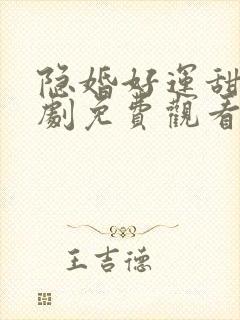 隐婚好運甜
劇免費觀看
王吉德